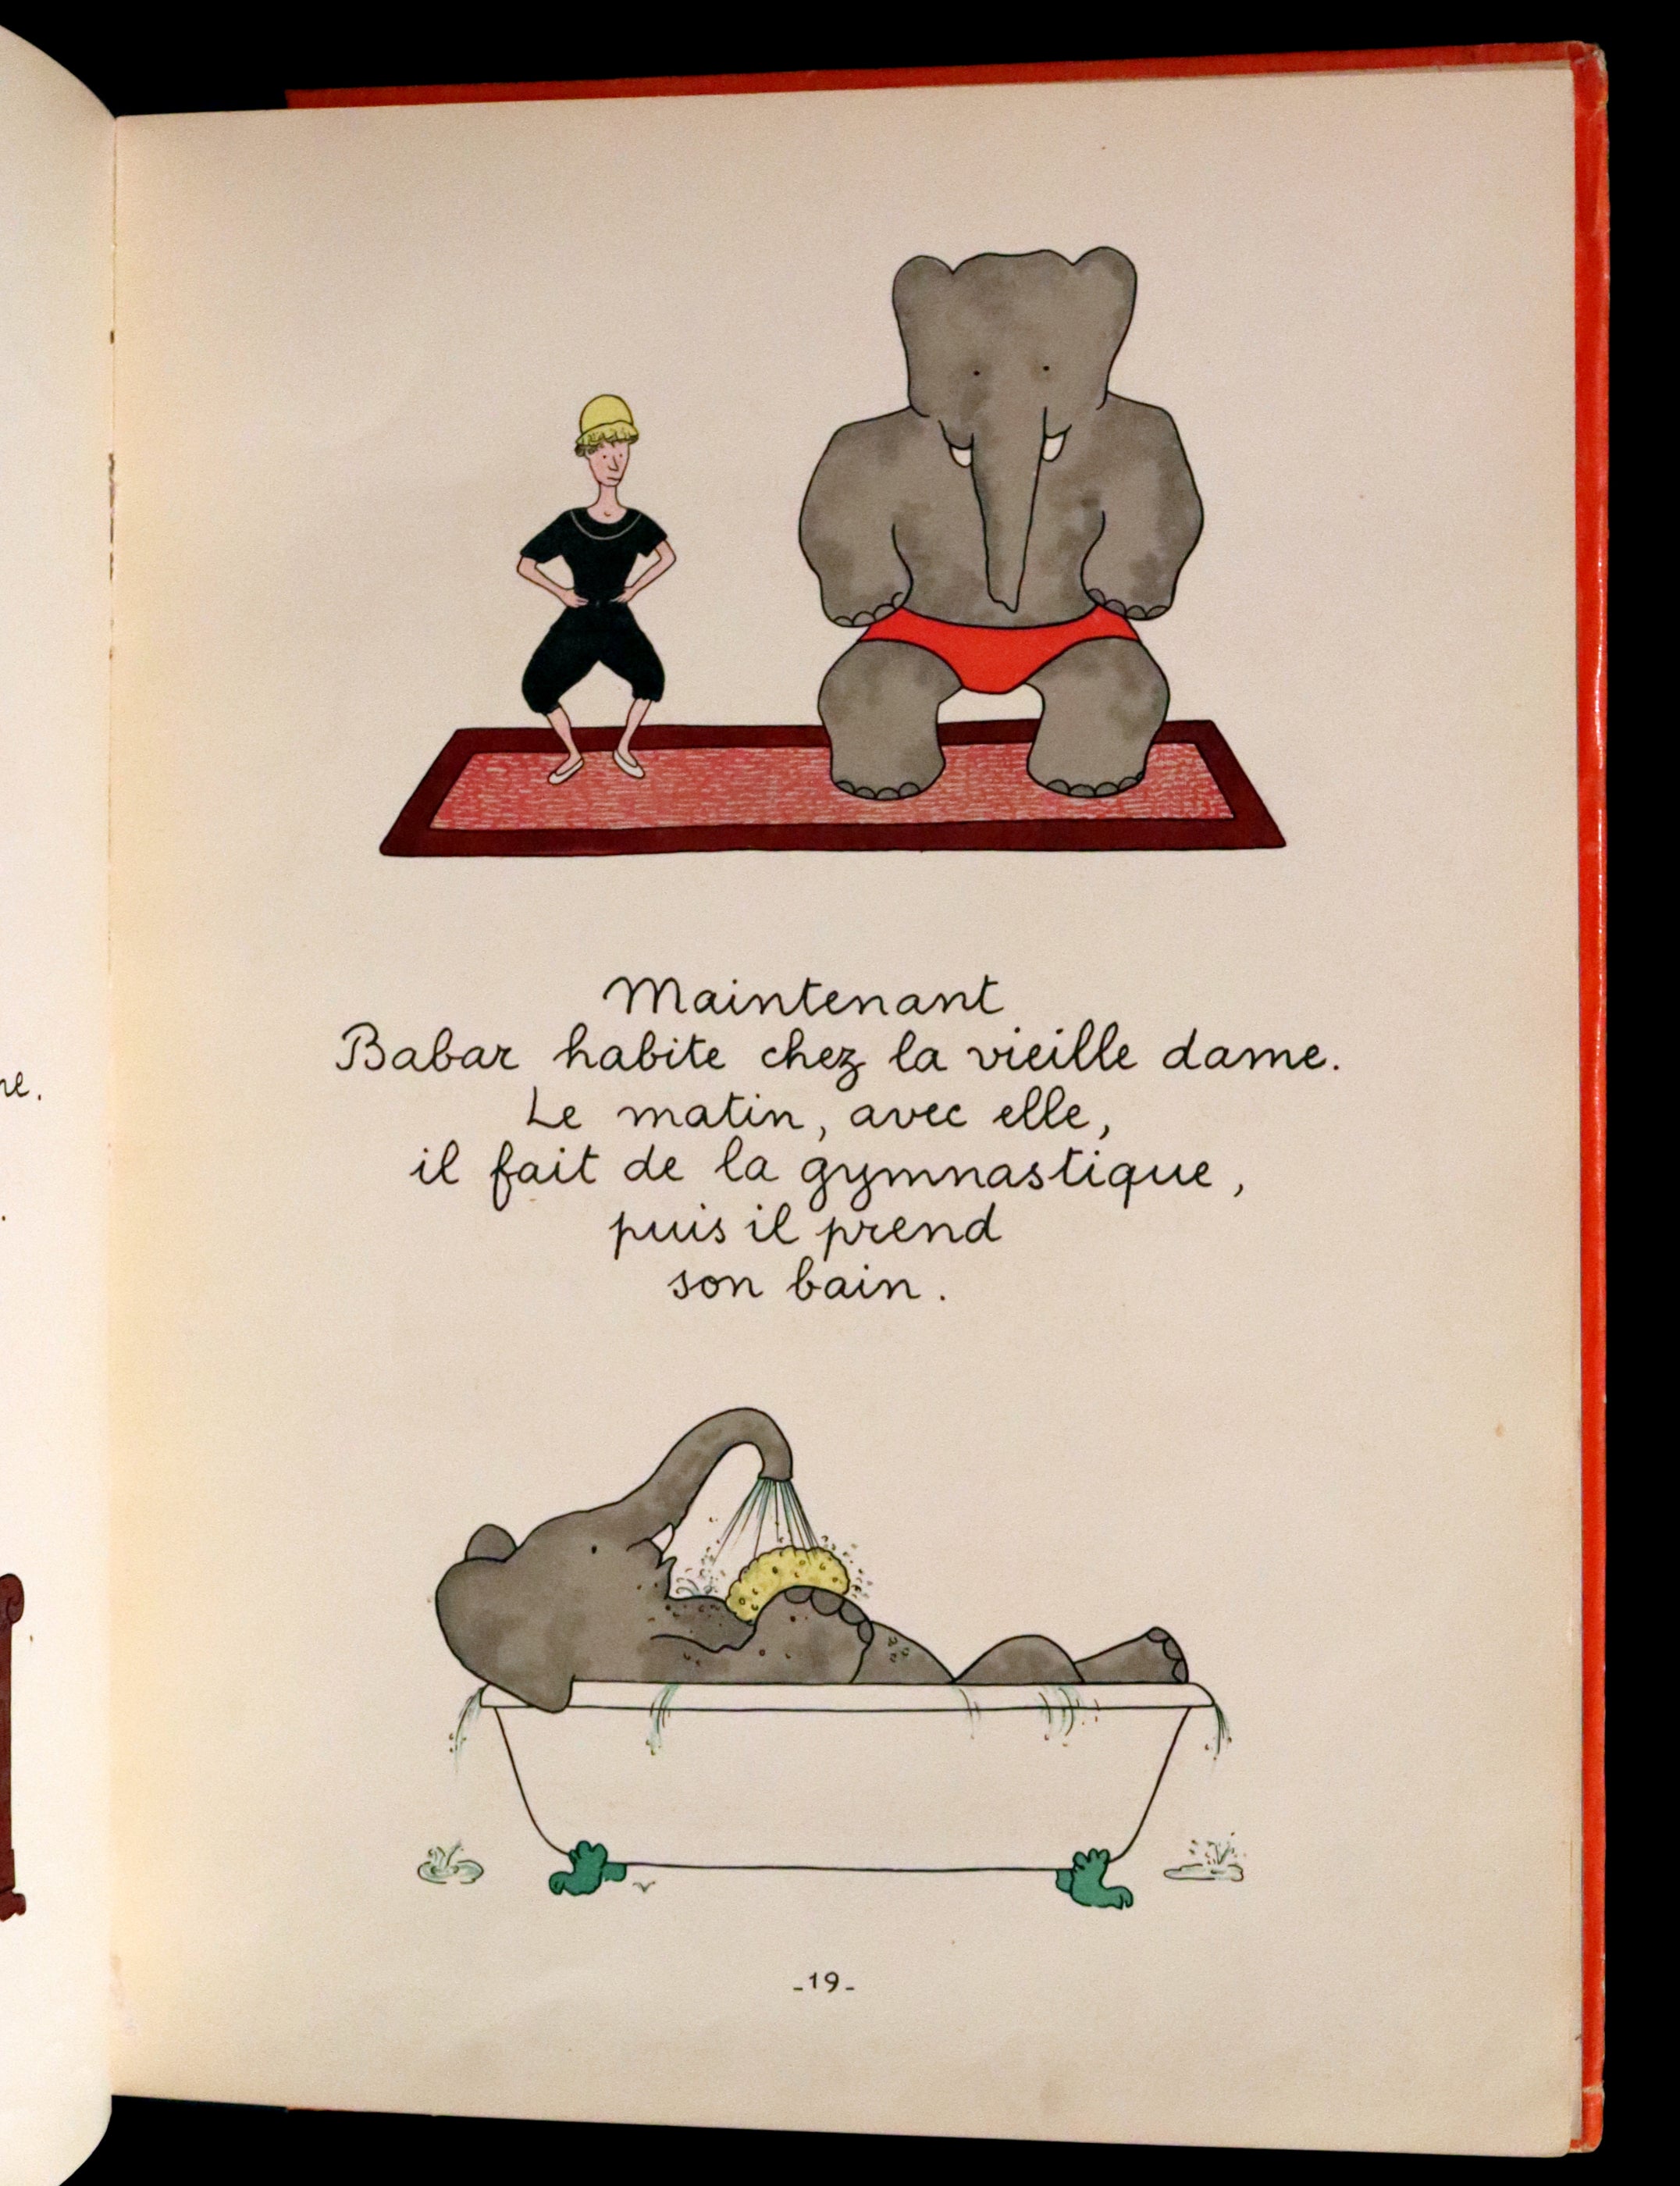 Maintenant
Babar habite chez la vieille dame.
Le matin, avec elle,
il fait de la gymnastique,
puis il prend
son bain.
-19-